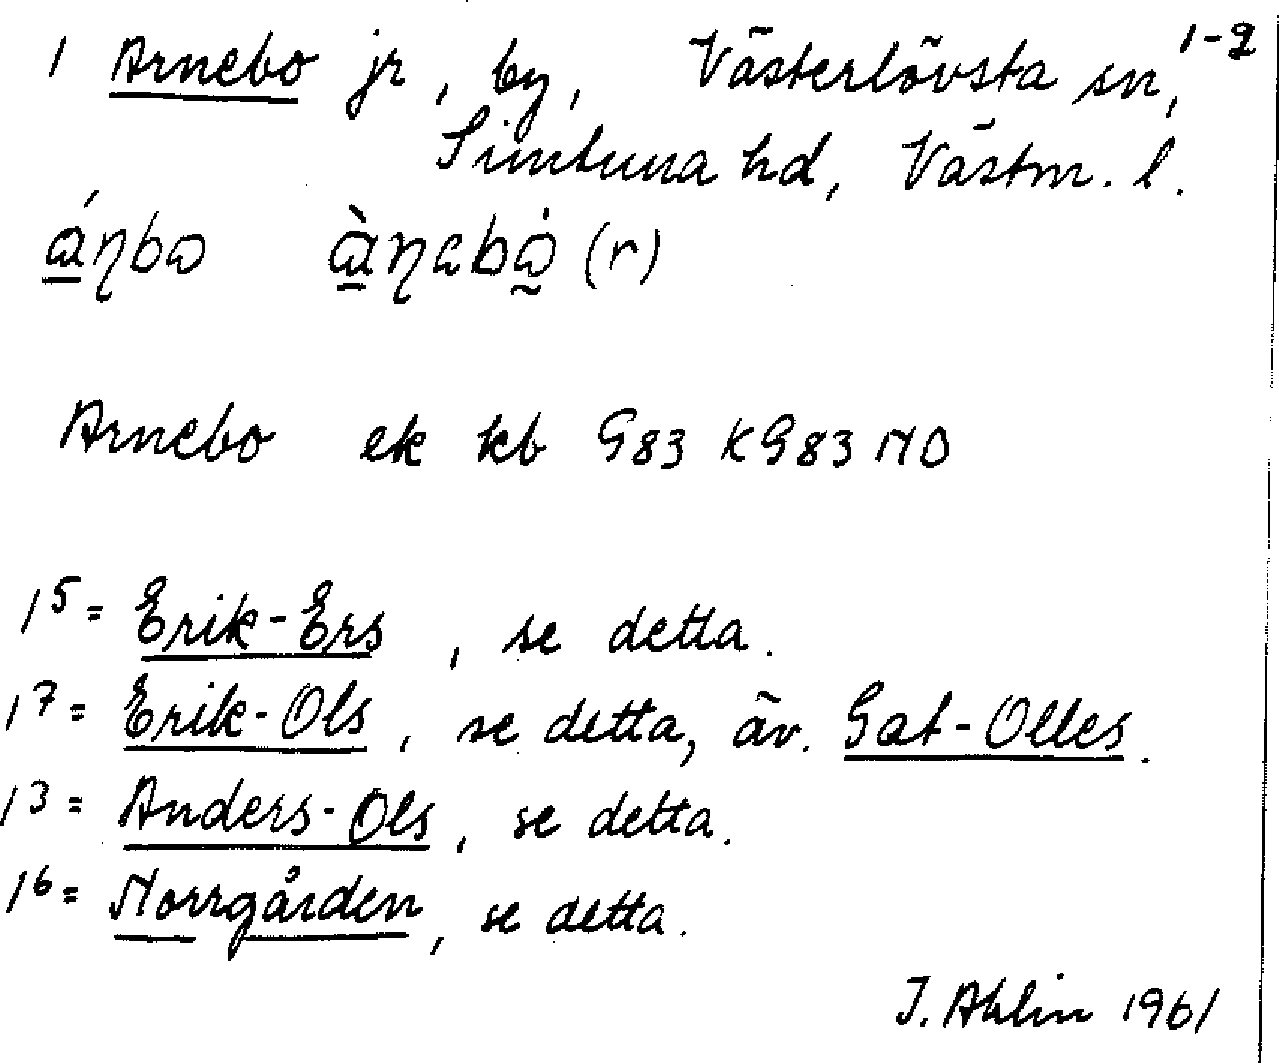 1 Arnebo jr, by, Västerlövsta sn, 1-2
Simtuna hd, Västm. l.
(r)
Arnebo ek kb G83 KG83 NO
1⁵ = Erik-Ers, se detta.
1⁷ = Erik-Ols, se detta, äv. Gat-Olles.
1³ = Anders-Ols, se detta.
1⁶ = Norrgården, se detta.
J. Ahlin 1961